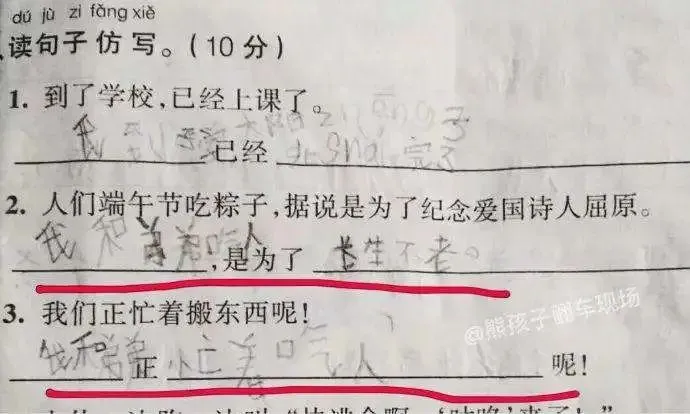 dú jù zi fǎng xiě
读句子仿写。(10分)
1. 到了学校,已经上课了。
我到 已经 完了
2. 人们端午节吃粽子,据说是为了纪念爱国诗人屈原。
我和弟弟吃人,是为了长生不老。
3. 我们正忙着搬东西呢!
我和弟弟正忙着吃人呢!
@熊孩子翻车现场